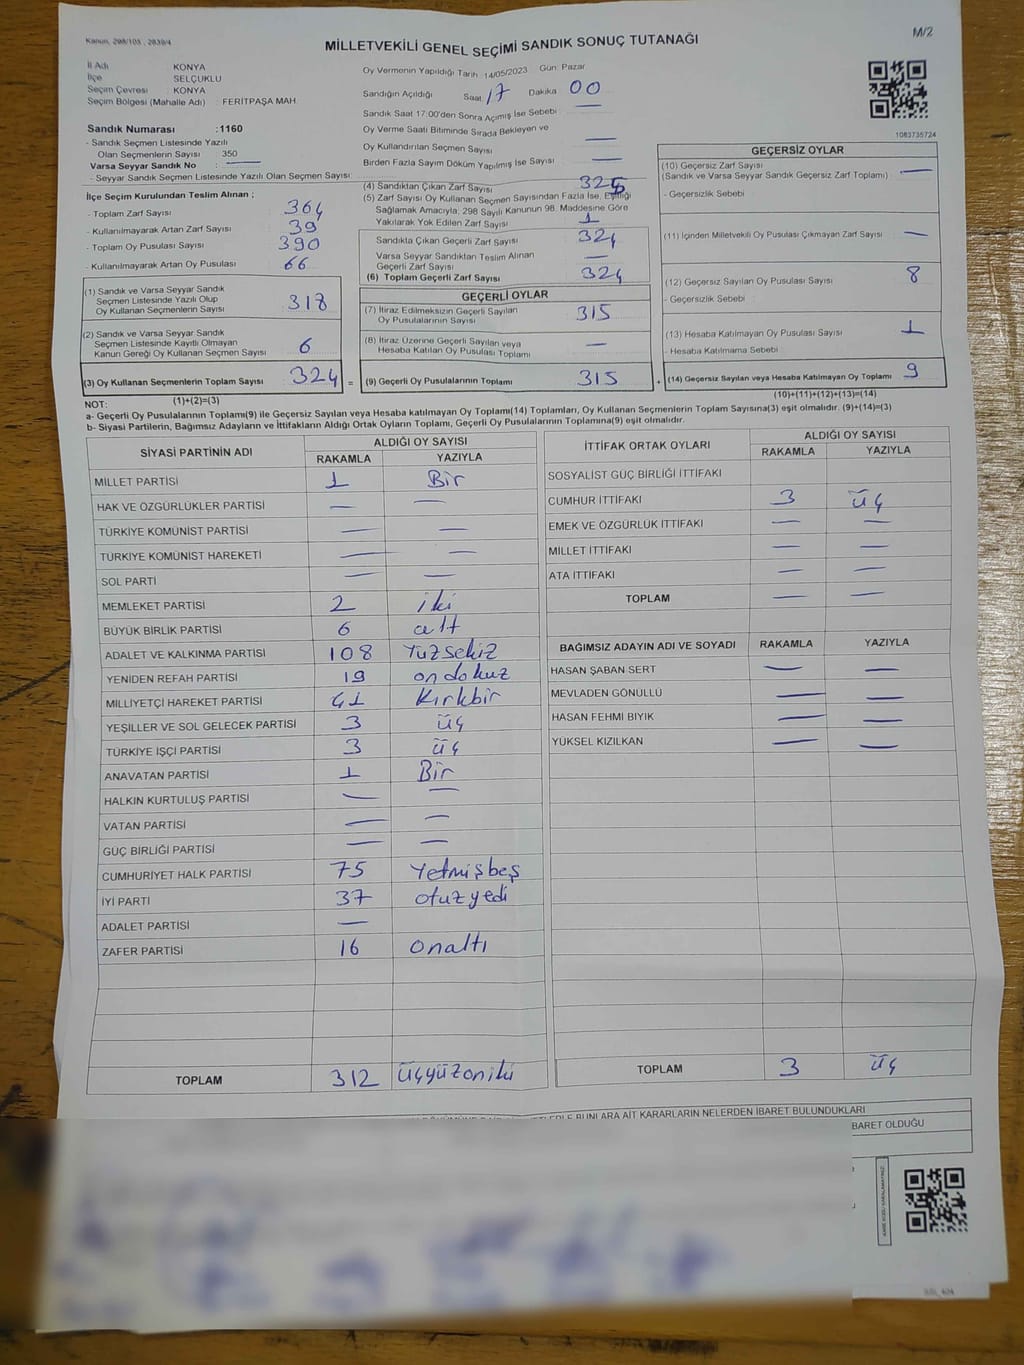 Kanun, 298/105 , 2839/4
M/2
MİLLETVEKİLİ GENEL SEÇİMİ SANDIK SONUÇ TUTANAĞI
İl Adı KONYA
İlçe SELÇUKLU
Seçim Çevresi : KONYA
Seçim Bölgesi (Mahalle Adı) : FERİTPAŞA MAH.
Sandık Numarası :1160
- Sandık Seçmen Listesinde Yazılı
Olan Seçmenlerin Sayısı 350
Varsa Seyyar Sandık No : —
- Seyyar Sandık Seçmen Listesinde Yazılı Olan Seçmen Sayısı:
İlçe Seçim Kurulundan Teslim Alınan ;
- Toplam Zarf Sayısı : 364
- Kullanılmayarak Artan Zarf Sayısı : 39
- Toplam Oy Pusulası Sayısı : 390
- Kullanılmayarak Artan Oy Pusulası 66
(1) Sandık ve Varsa Seyyar Sandık
Seçmen Listesinde Yazılı Olup
Oy Kullanan Seçmenlerin Sayısı 318
(2) Sandık ve Varsa Seyyar Sandık
Seçmen Listesinde Kayıtlı Olmayan
Kanun Gereği Oy Kullanan Seçmen Sayısı 6
(3) Oy Kullanan Seçmenlerin Toplam Sayısı 324 =
(1)+(2)=(3)
Oy Vermenin Yapıldığı Tarih :14/05/2023 Gün: Pazar
Sandığın Açıldığı Saat 17 Dakika 00
Sandık Saat 17:00'den Sonra Açılmış İse Sebebi : —
Oy Verme Saati Bitiminde Sırada Bekleyen ve
Oy Kullandırılan Seçmen Sayısı —
Birden Fazla Sayım Döküm Yapılmış İse Sayısı —
(4) Sandıktan Çıkan Zarf Sayısı 325
(5) Zarf Sayısı Oy Kullanan Seçmen Sayısından Fazla İse, Eşitliği
Sağlamak Amacıyla; 298 Sayılı Kanunun 98. Maddesine Göre
Yakılarak Yok Edilen Zarf Sayısı 1
Sandıkta Çıkan Geçerli Zarf Sayısı 324
Varsa Seyyar Sandıktan Teslim Alınan
Geçerli Zarf Sayısı —
(6) Toplam Geçerli Zarf Sayısı 324
GEÇERLİ OYLAR
(7) İtiraz Edilmeksizin Geçerli Sayılan
Oy Pusulalarının Sayısı 315
(8) İtiraz Üzerine Geçerli Sayılan veya
Hesaba Katılan Oy Pusulası Toplamı —
(9) Geçerli Oy Pusulalarının Toplamı 315 +
1083735724
GEÇERSİZ OYLAR
(10) Geçersiz Zarf Sayısı
(Sandık ve Varsa Seyyar Sandık Geçersiz Zarf Toplamı) —
- Geçersizlik Sebebi
(11) İçinden Milletvekili Oy Pusulası Çıkmayan Zarf Sayısı —
(12) Geçersiz Sayılan Oy Pusulası Sayısı 8
- Geçersizlik Sebebi
(13) Hesaba Katılmayan Oy Pusulası Sayısı 1
- Hesaba Katılmama Sebebi
(14) Geçersiz Sayılan veya Hesaba Katılmayan Oy Toplamı 9
(10)+(11)+(12)+(13)=(14)
NOT:
a- Geçerli Oy Pusulalarının Toplamı(9) ile Geçersiz Sayılan veya Hesaba katılmayan Oy Toplamı(14) Toplamları, Oy Kullanan Seçmenlerin Toplam Sayısına(3) eşit olmalıdır. (9)+(14)=(3)
b- Siyasi Partilerin, Bağımsız Adayların ve İttifakların Aldığı Ortak Oyların Toplamı, Geçerli Oy Pusulalarının Toplamına(9) eşit olmalıdır.
SİYASİ PARTİNİN ADI ALDIĞI OY SAYISI
RAKAMLA YAZIYLA
MİLLET PARTİSİ 1 Bir
HAK VE ÖZGÜRLÜKLER PARTİSİ — —
TÜRKİYE KOMÜNİST PARTİSİ — —
TÜRKİYE KOMÜNİST HAREKETİ — —
SOL PARTİ — —
MEMLEKET PARTİSİ 2 iki
BÜYÜK BİRLİK PARTİSİ 6 altı
ADALET VE KALKINMA PARTİSİ 108 Yüzsekiz
YENİDEN REFAH PARTİSİ 19 ondokuz
MİLLİYETÇİ HAREKET PARTİSİ 41 Kırkbir
YEŞİLLER VE SOL GELECEK PARTİSİ 3 üç
TÜRKİYE İŞÇİ PARTİSİ 3 üç
ANAVATAN PARTİSİ 1 Bir
HALKIN KURTULUŞ PARTİSİ — —
VATAN PARTİSİ — —
GÜÇ BİRLİĞİ PARTİSİ — —
CUMHURİYET HALK PARTİSİ 75 Yetmişbeş
İYİ PARTİ 37 otuzyedi
ADALET PARTİSİ —
ZAFER PARTİSİ 16 onaltı
TOPLAM 312 üçyüzoniki
İTTİFAK ORTAK OYLARI ALDIĞI OY SAYISI
RAKAMLA YAZIYLA
SOSYALİST GÜÇ BİRLİĞİ İTTİFAKI
CUMHUR İTTİFAKI 3 üç
EMEK VE ÖZGÜRLÜK İTTİFAKI — —
MİLLET İTTİFAKI — —
ATA İTTİFAKI — —
TOPLAM — —
BAĞIMSIZ ADAYIN ADI VE SOYADI RAKAMLA YAZIYLA
HASAN ŞABAN SERT — —
MEVLADEN GÖNÜLLÜ — —
HASAN FEHMİ BIYIK — —
YÜKSEL KIZILKAN — —
TOPLAM 3 üç
BUNLARA AİT KARARLARIN NELERDEN İBARET BULUNDUKLARI
BARET OLDUĞU